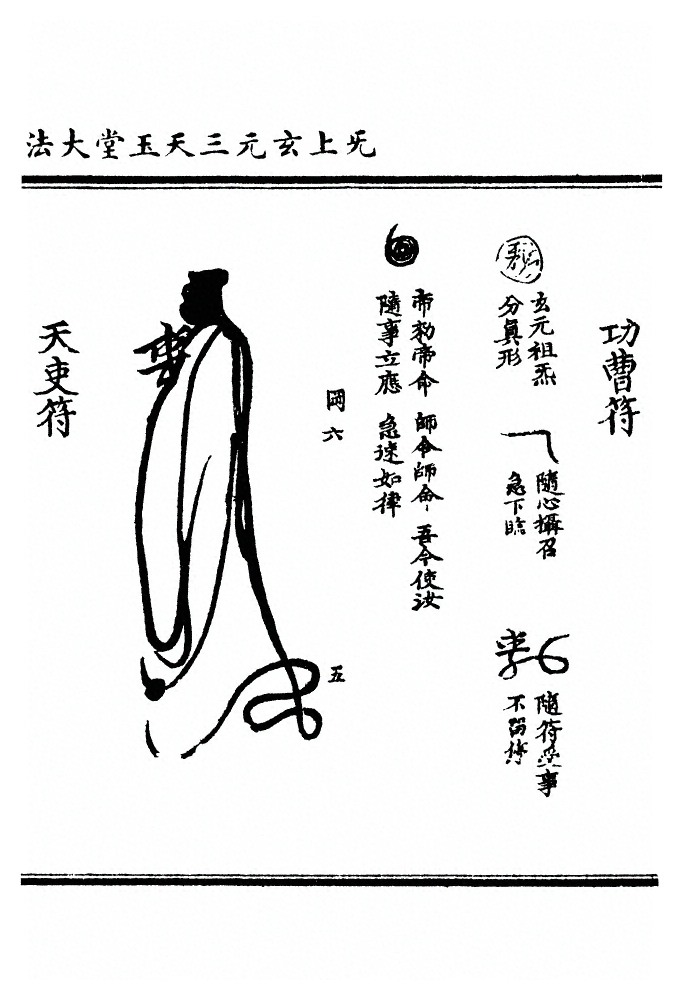 旡上玄元三天玉堂大法
功曹符
玄元祖炁
分真形
隨心攝召
急下臨
隨符受事
不留停
帝敕帝命 師令師命 吾今使汝
隨事立應 急速如律
罡六
五
天吏符